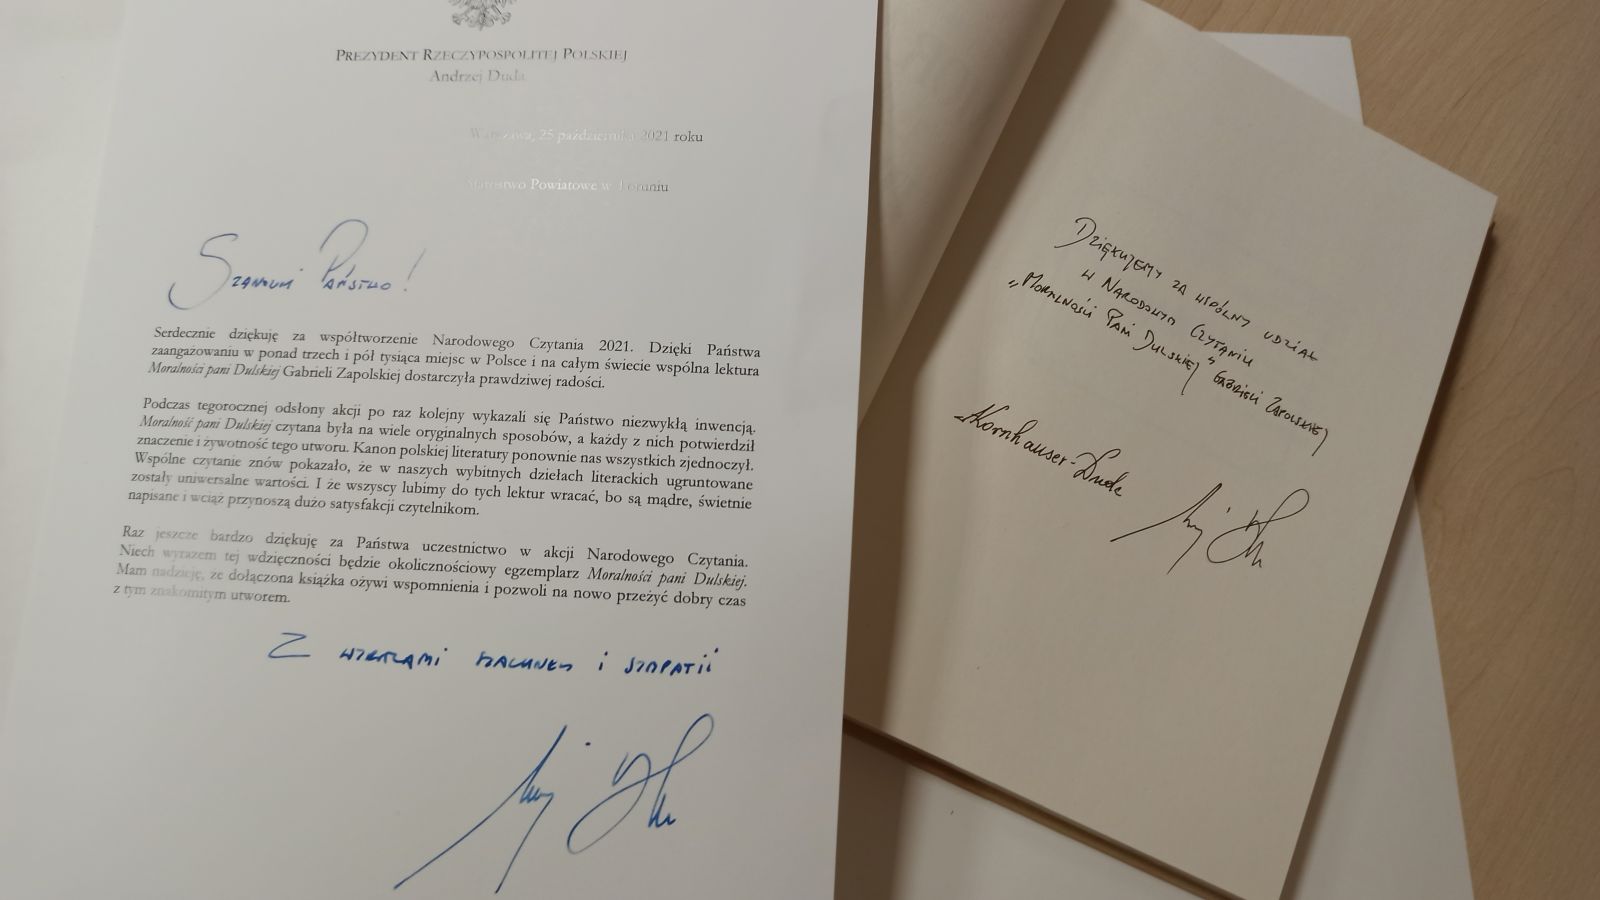 PREZYDENT RZECZYPOSPOLITEJ POLSKIEJ
Andrzej Duda
Warszawa, 25 października 2021 roku
Starostwo Powiatowe w Toruniu
SZANOWNI PAŃSTWO!
Serdecznie dziękuję za współtworzenie Narodowego Czytania 2021. Dzięki Państwa
zaangażowaniu w ponad trzech i pół tysiąca miejsc w Polsce i na całym świecie wspólna lektura
Moralności pani Dulskiej Gabrieli Zapolskiej dostarczyła prawdziwej radości.
Podczas tegorocznej odsłony akcji po raz kolejny wykazali się Państwo niezwykłą inwencją.
Moralność pani Dulskiej czytana była na wiele oryginalnych sposobów, a każdy z nich potwierdził
znaczenie i żywotność tego utworu. Kanon polskiej literatury ponownie nas wszystkich zjednoczył.
Wspólne czytanie znów pokazało, że w naszych wybitnych dziełach literackich ugruntowane
zostały uniwersalne wartości. I że wszyscy lubimy do tych lektur wracać, bo są mądre, świetnie
napisane i wciąż przynoszą dużo satysfakcji czytelnikom.
Raz jeszcze bardzo dziękuję za Państwa uczestnictwo w akcji Narodowego Czytania.
Niech wyrazem tej wdzięczności będzie okolicznościowy egzemplarz Moralności pani Dulskiej.
Mam nadzieję, że dołączona książka ożywi wspomnienia i pozwoli na nowo przeżyć dobry czas
z tym znakomitym utworem.
Z WYRAZAMI SZACUNKU I SYMPATII
DZIĘKUJEMY ZA WSPÓLNY UDZIAŁ
W NARODOWYM CZYTANIU
„MORALNOŚCI PANI DULSKIEJ" GABRIELI ZAPOLSKIEJ
AKornhauser-Duda